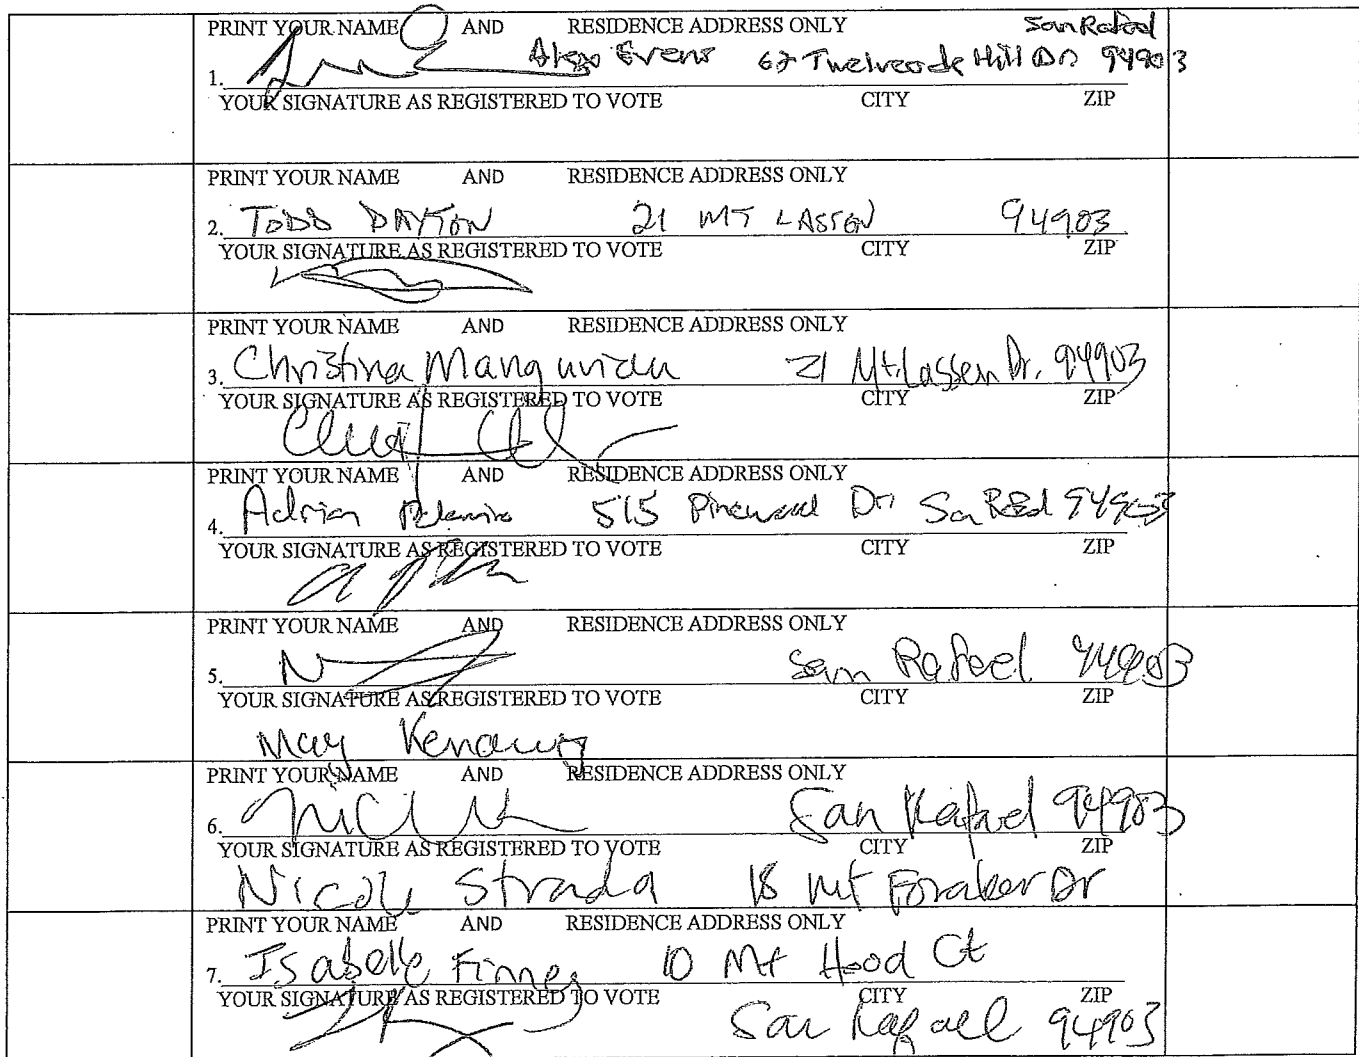 PRINT YOUR NAME AND RESIDENCE ADDRESS ONLY San Rafael
Evens 62 Hill Dr 94903
1.
YOUR SIGNATURE AS REGISTERED TO VOTE CITY ZIP
PRINT YOUR NAME AND RESIDENCE ADDRESS ONLY
2. TODD DAYTON 21 MT LASSEN 94903
YOUR SIGNATURE AS REGISTERED TO VOTE CITY ZIP
PRINT YOUR NAME AND RESIDENCE ADDRESS ONLY
3. Christina Mangurian 21 Mt. Lassen Dr. 94903
YOUR SIGNATURE AS REGISTERED TO VOTE CITY ZIP
PRINT YOUR NAME AND RESIDENCE ADDRESS ONLY
4. Adrian 515 Pinewood Dr San Rafael 94903
YOUR SIGNATURE AS REGISTERED TO VOTE CITY ZIP
PRINT YOUR NAME AND RESIDENCE ADDRESS ONLY
5. San Rafael 94903
YOUR SIGNATURE AS REGISTERED TO VOTE CITY ZIP
May Kenawy
PRINT YOUR NAME AND RESIDENCE ADDRESS ONLY
6. San Rafael 94903
YOUR SIGNATURE AS REGISTERED TO VOTE CITY ZIP
Nicole Strada 18 Mt Foraker Dr
PRINT YOUR NAME AND RESIDENCE ADDRESS ONLY
7. Isabelle Finney 10 Mt Hood Ct
YOUR SIGNATURE AS REGISTERED TO VOTE CITY ZIP
San Rafael 94903